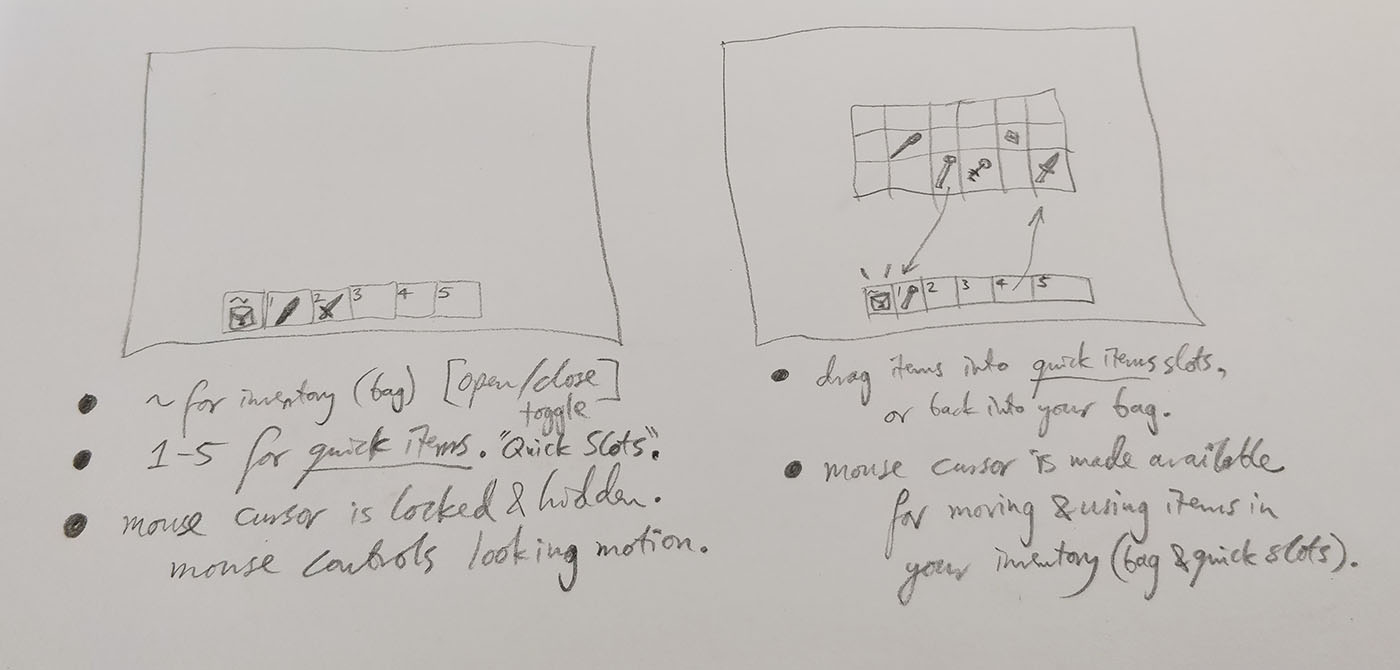 ~ 1 2 3 4 5
• ~ for inventory (bag) [open/close
toggle]
• 1-5 for quick items. "Quick Slots".
• mouse cursor is locked & hidden.
mouse controls looking motion.
~ 1 2 3 4 5
• drag items into quick items slots,
or back into your bag.
• mouse cursor is made available
for moving & using items in
your inventory (bag & quick slots).